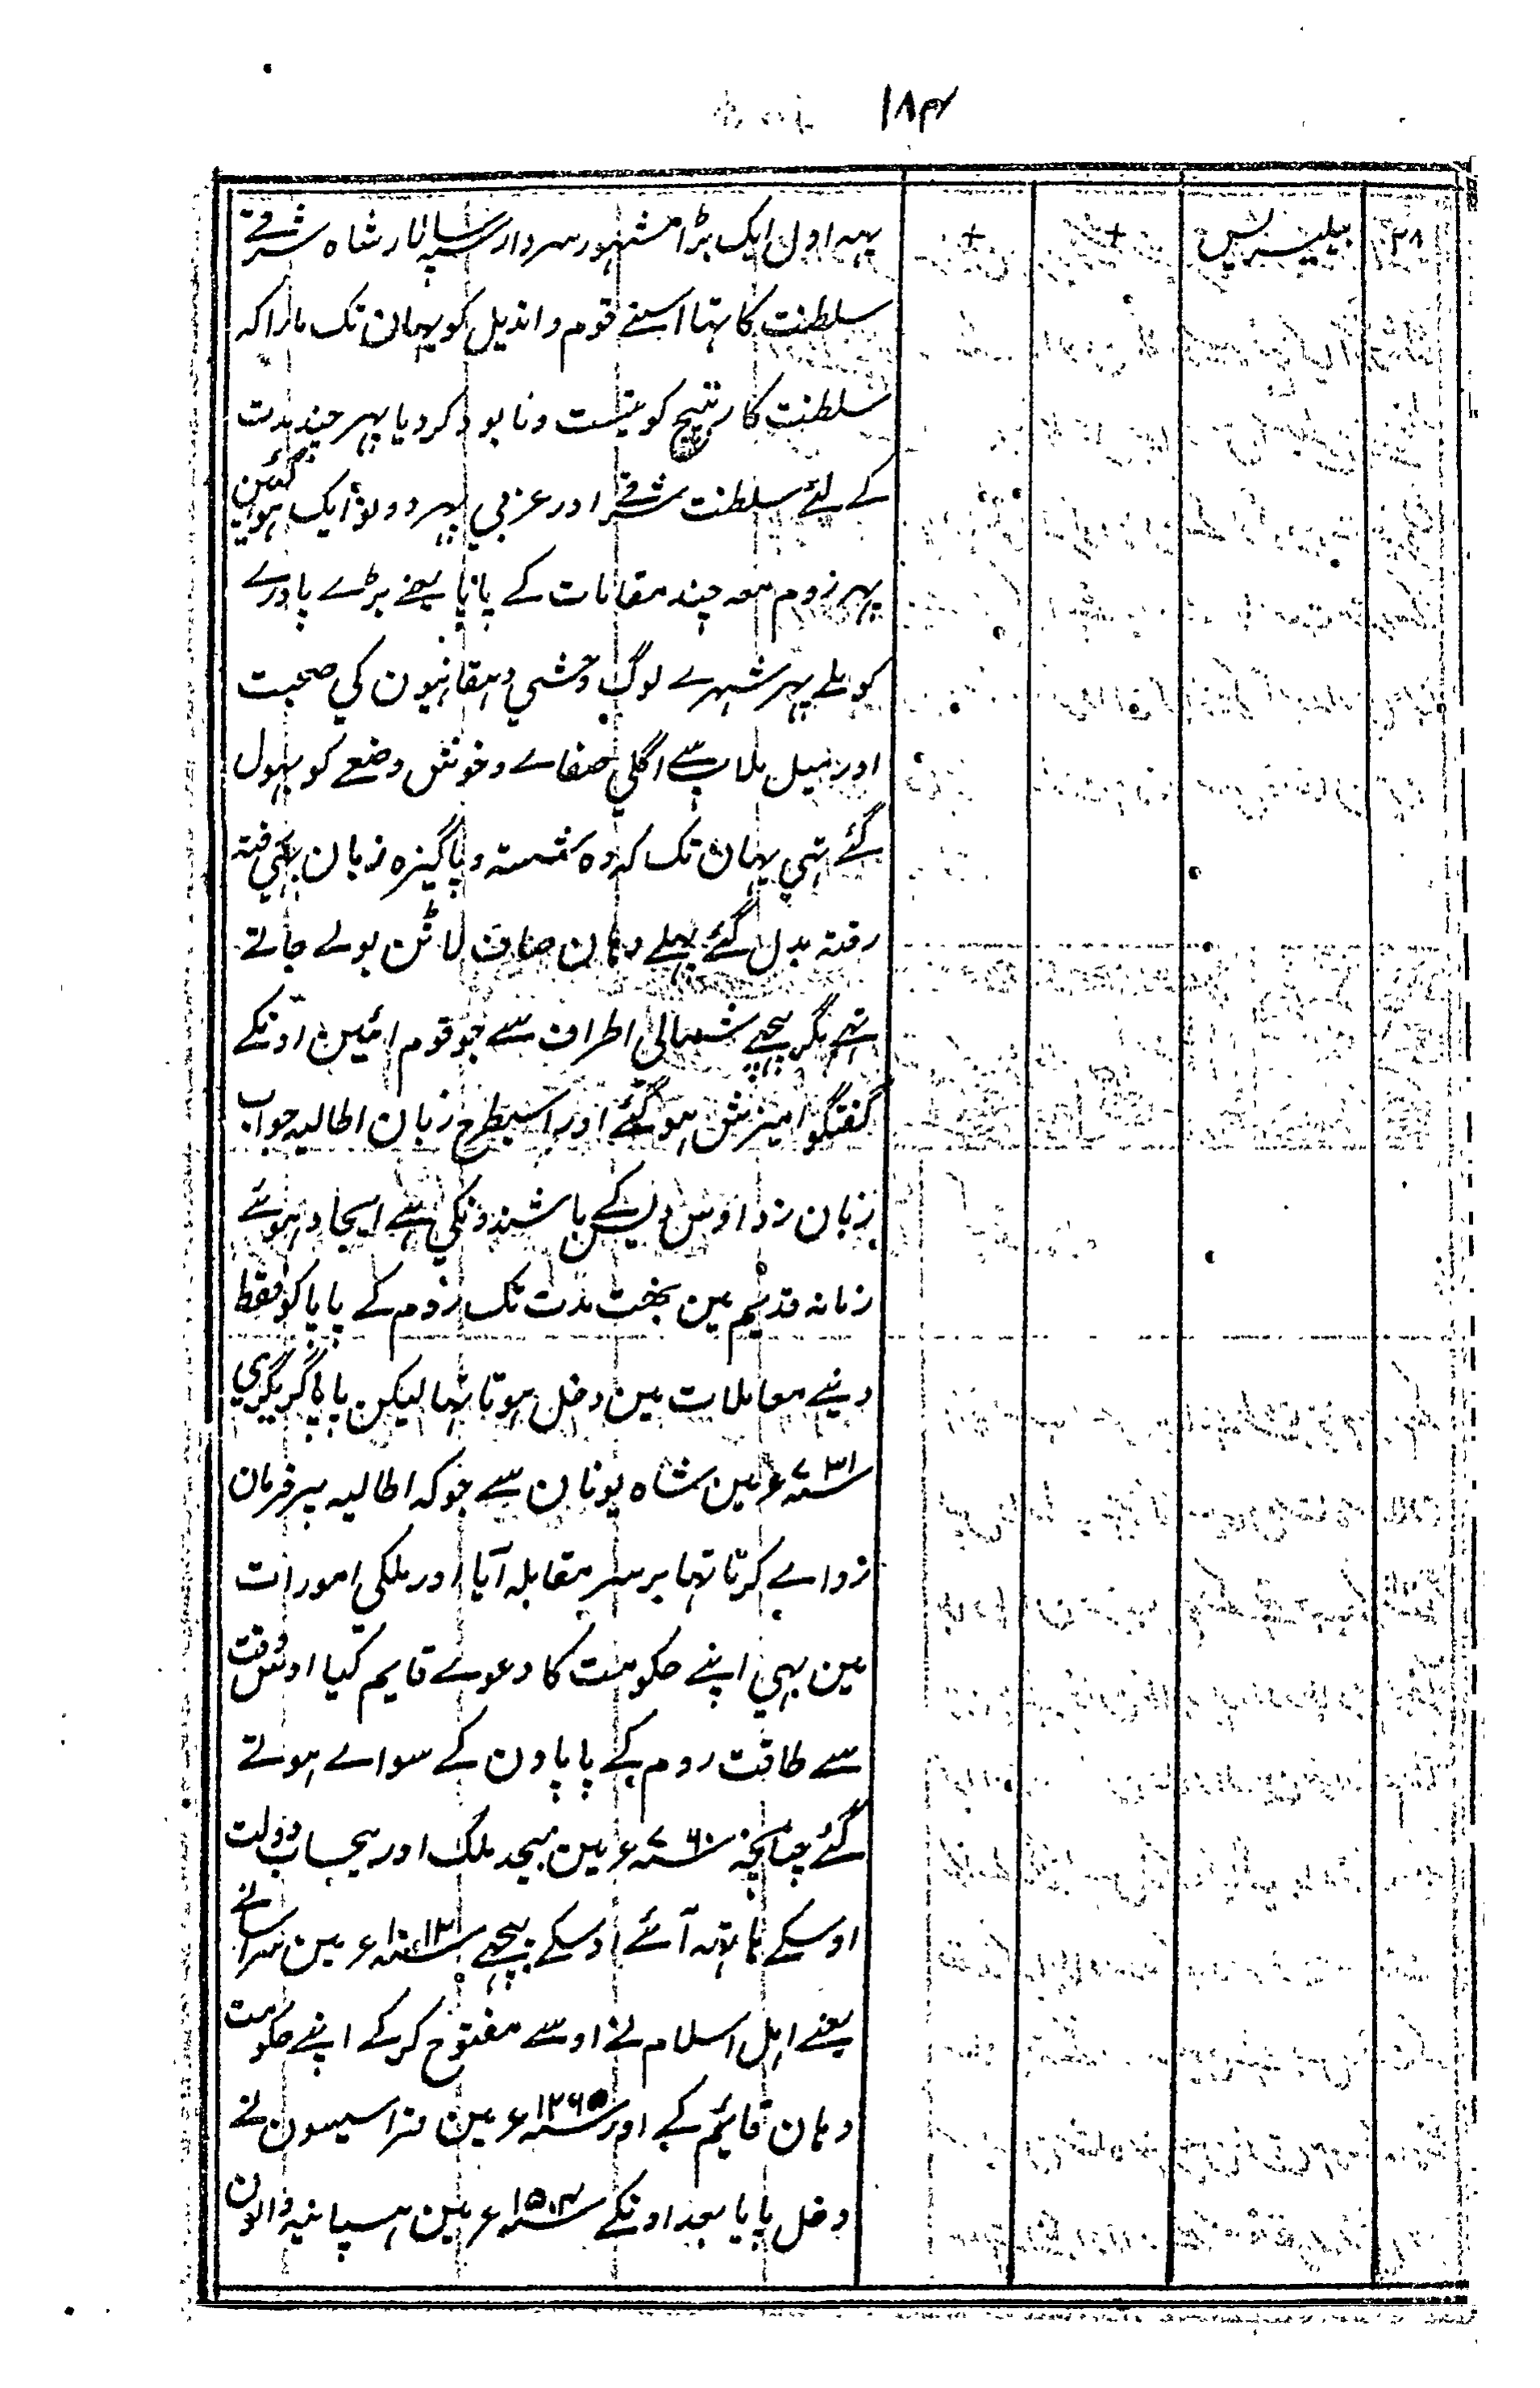 ۱۸۴
۳۸ بیلیسریس + + یہہ اول ایک بڑا مشہور سردار سپہ سالار شاہ شرقے
سلطنت کا تہا اسنے قوم واندیل کو یہان تک مارا کہ
سلطنت کارتہیج کو نیست و نابود کر دیا پہر چند مدت
کے لئے سلطنت شرقے اور غربی پہر دونو ایک ہوگئین
پہر روم معہ چند مقامات کے پاپا یعنے بڑے پادرے
کو ملے پہر شہرے لوگ وحشی دہقانیون کی صحبت
اور میل ملاپ سے اگلی صفاے و خوش وضعے کو بہول
گئے تہی یہان تک کہ وہ شستہ و پاکیزہ زبان بہی رفتہ
رفتہ بدل گئے پہلے وہان صاف لاٹن بولے جاتے
تہے مگر پیچہے شمالی اطراف سے جو قوم ائین اونکے
گفتگو امیزش ہو گئے اور اسیطرح زبان اطالیہ جو اب
زبان زد اوس دیس کے باشندونکی ہے ایجاد ہوئے
زمانہ قدیم مین بہت مدت تک روم کے پاپا کو فقط
دینے معاملات مین دخل ہوتا تہا لیکن پاپا گریگری
سنہ ۷۳۱ ء مین شاہ یونان سے جو کہ اطالیہ پر فرمان
رواے کرتا تہا بر سر مقابلہ آیا اور ملکی امورات
مین بہی اپنے حکومت کا دعوے قایم کیا اوس وقت
سے طاقت روم کے پاپاون کے سواے ہوتے
گئے چنانچہ سنہ ۷۶۰ ء مین بیحد ملک اور بیحساب دولت
اوسکے ہاتہہ آئے اوسکے پیچہے سنہ ء مین سراسانے
یعنے اہل اسلام نے اوسے مفتوح کر کے اپنے حکومت
وہان قایٔم کے اور سنہ ۱۲۶۵ ء مین فراسیسون نے
دخل پایا بعد اونکے سنہ ۱۵۰۴ ء مین ہسپانیہ والون